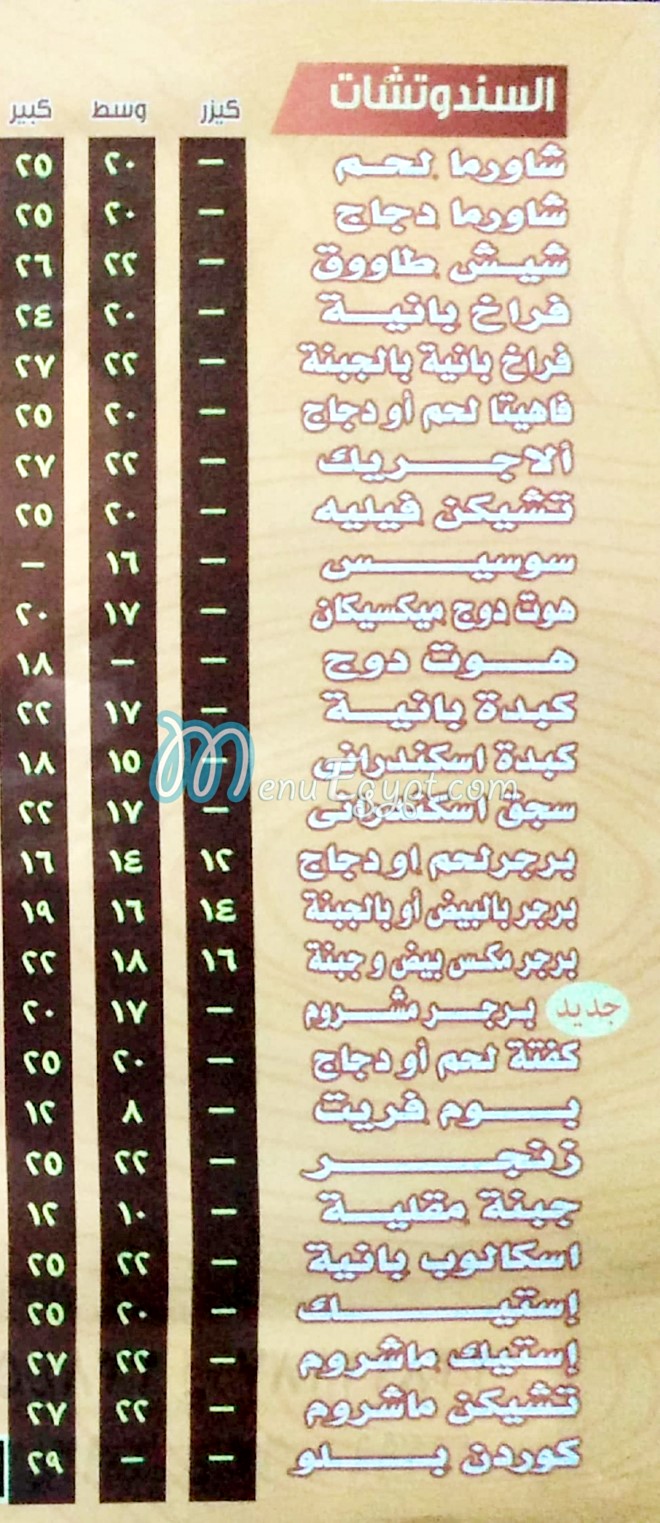 السندوتشات كيزر وسط كبير
شاورما لحم — ٢٠ ٢٥
شاورما دجاج — ٢٠ ٢٥
شيش طاووق — ٢٢ ٢٦
فراخ بانية — ٢٠ ٢٤
فراخ بانية بالجبنة — ٢٢ ٢٧
فاهيتا لحم أو دجاج — ٢٠ ٢٥
ألاجريك — ٢٢ ٢٧
تشيكن فيليه — ٢٠ ٢٥
سوسيس — ١٦ —
هوت دوج ميكسيكان — ١٧ ٢٠
هوت دوج — — ١٨
كبدة بانية — ١٧ ٢٢
كبدة اسكندرانى — ١٥ ١٨
MenuEgypt.com
سجق اسكندرانى — ١٧ ٢٢
برجرلحم او دجاج ١٢ ١٤ ١٦
برجر بالبيض أو بالجبنة ١٤ ١٦ ١٩
برجر مكس بيض و جبنة ١٦ ١٨ ٢٢
جديد برجر مشروم — ١٧ ٢٠
كفتة لحم أو دجاج — ٢٠ ٢٥
بوم فريت — ٨ ١٢
زنجر — ٢٢ ٢٥
جبنة مقلية — ١٠ ١٢
اسكالوب بانية — ٢٢ ٢٥
إستيك — ٢٠ ٢٥
إستيك ماشروم — ٢٢ ٢٧
تشيكن ماشروم — ٢٢ ٢٧
كوردن بلو — — ٢٩